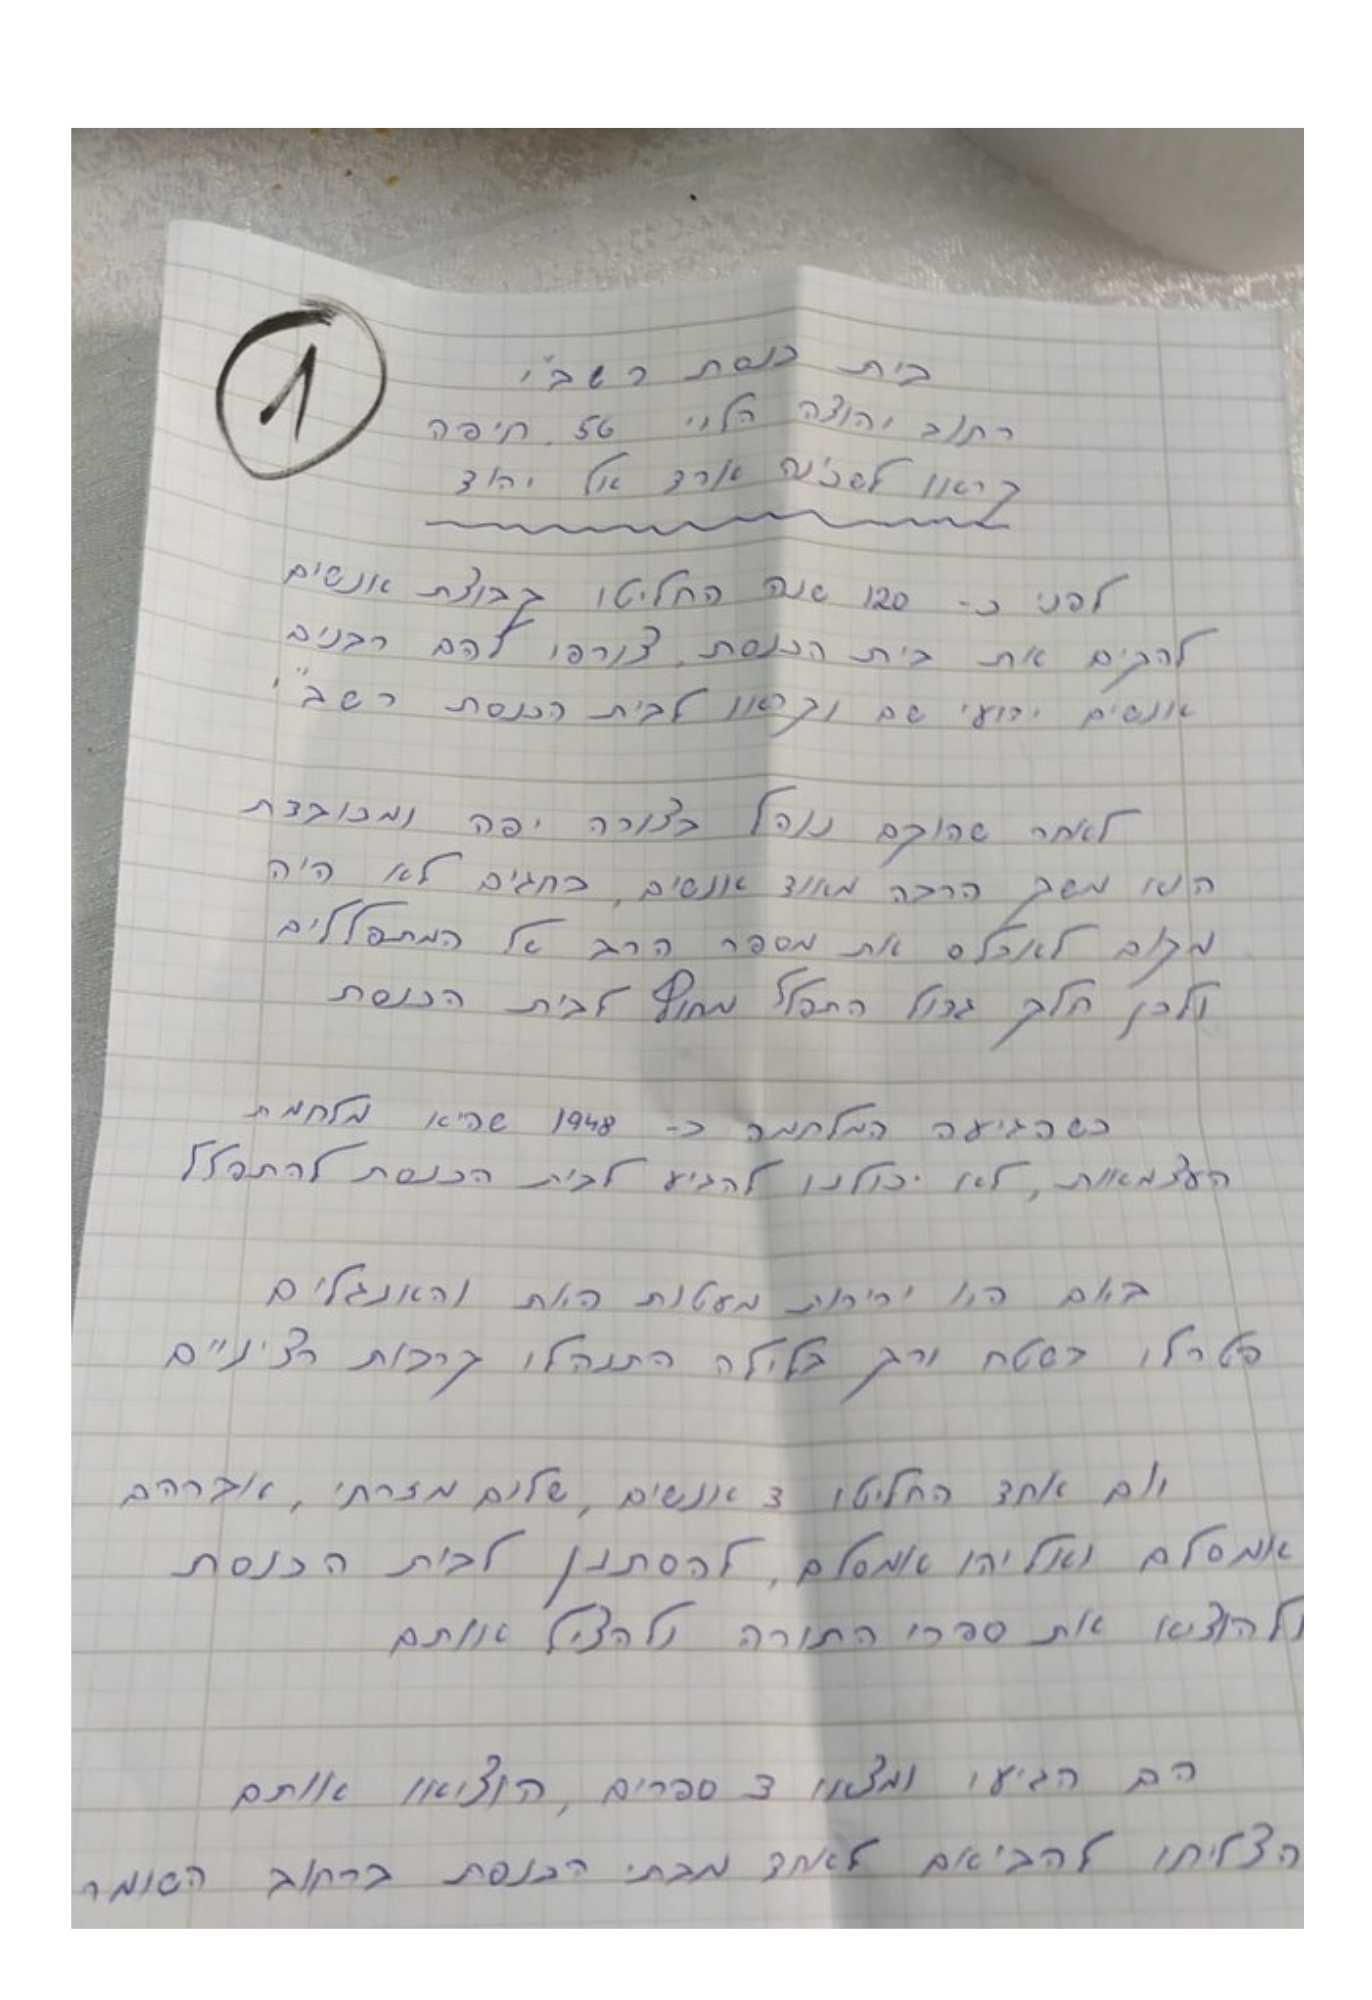 1
בית כנסת רשב"י
רחוב יהודה הלוי 56 חיפה
קראו לשכ'נה ארד אל יהוד
לפני כ- 120 שנה החליטו קבוצת אנשים
להקים את בית הכנסת, צורפו להם רבנים
אנשים ידועי שם וקראו לבית הכנסת רשב"י
לאחר שהוקם נוהל בצורה יפה ומכובדת
הוא משך הרבה מאוד אנשים, בחגים לא היה
מקום לאכלס את מספר הרב של המתפללים
ולכן חלק גדול התפלל מחוץ לבית הכנסת
כשהגיעה המלחמה ב- 1948 שהיא מלחמת
העצמאות, לא יכולנו להגיע לבית הכנסת להתפלל
באם היו יריות מעטות האת והאנגלים
פטרלו בשטח ורק בלילה התנהלו קרבות רציניים
יום אחד החליטו 3 אנשים, שלום מזרחי, אברהם
אמסלם ואליהו אמסלם, להסתנן לבית הכנסת
ולהוציא את ספרי התורה ולהציל אותם
הם הגיעו ומצאו 3 ספרים, הוציאו אותם
הצליחו להביאם לאחד מבתי הכנסת ברחוב השומר